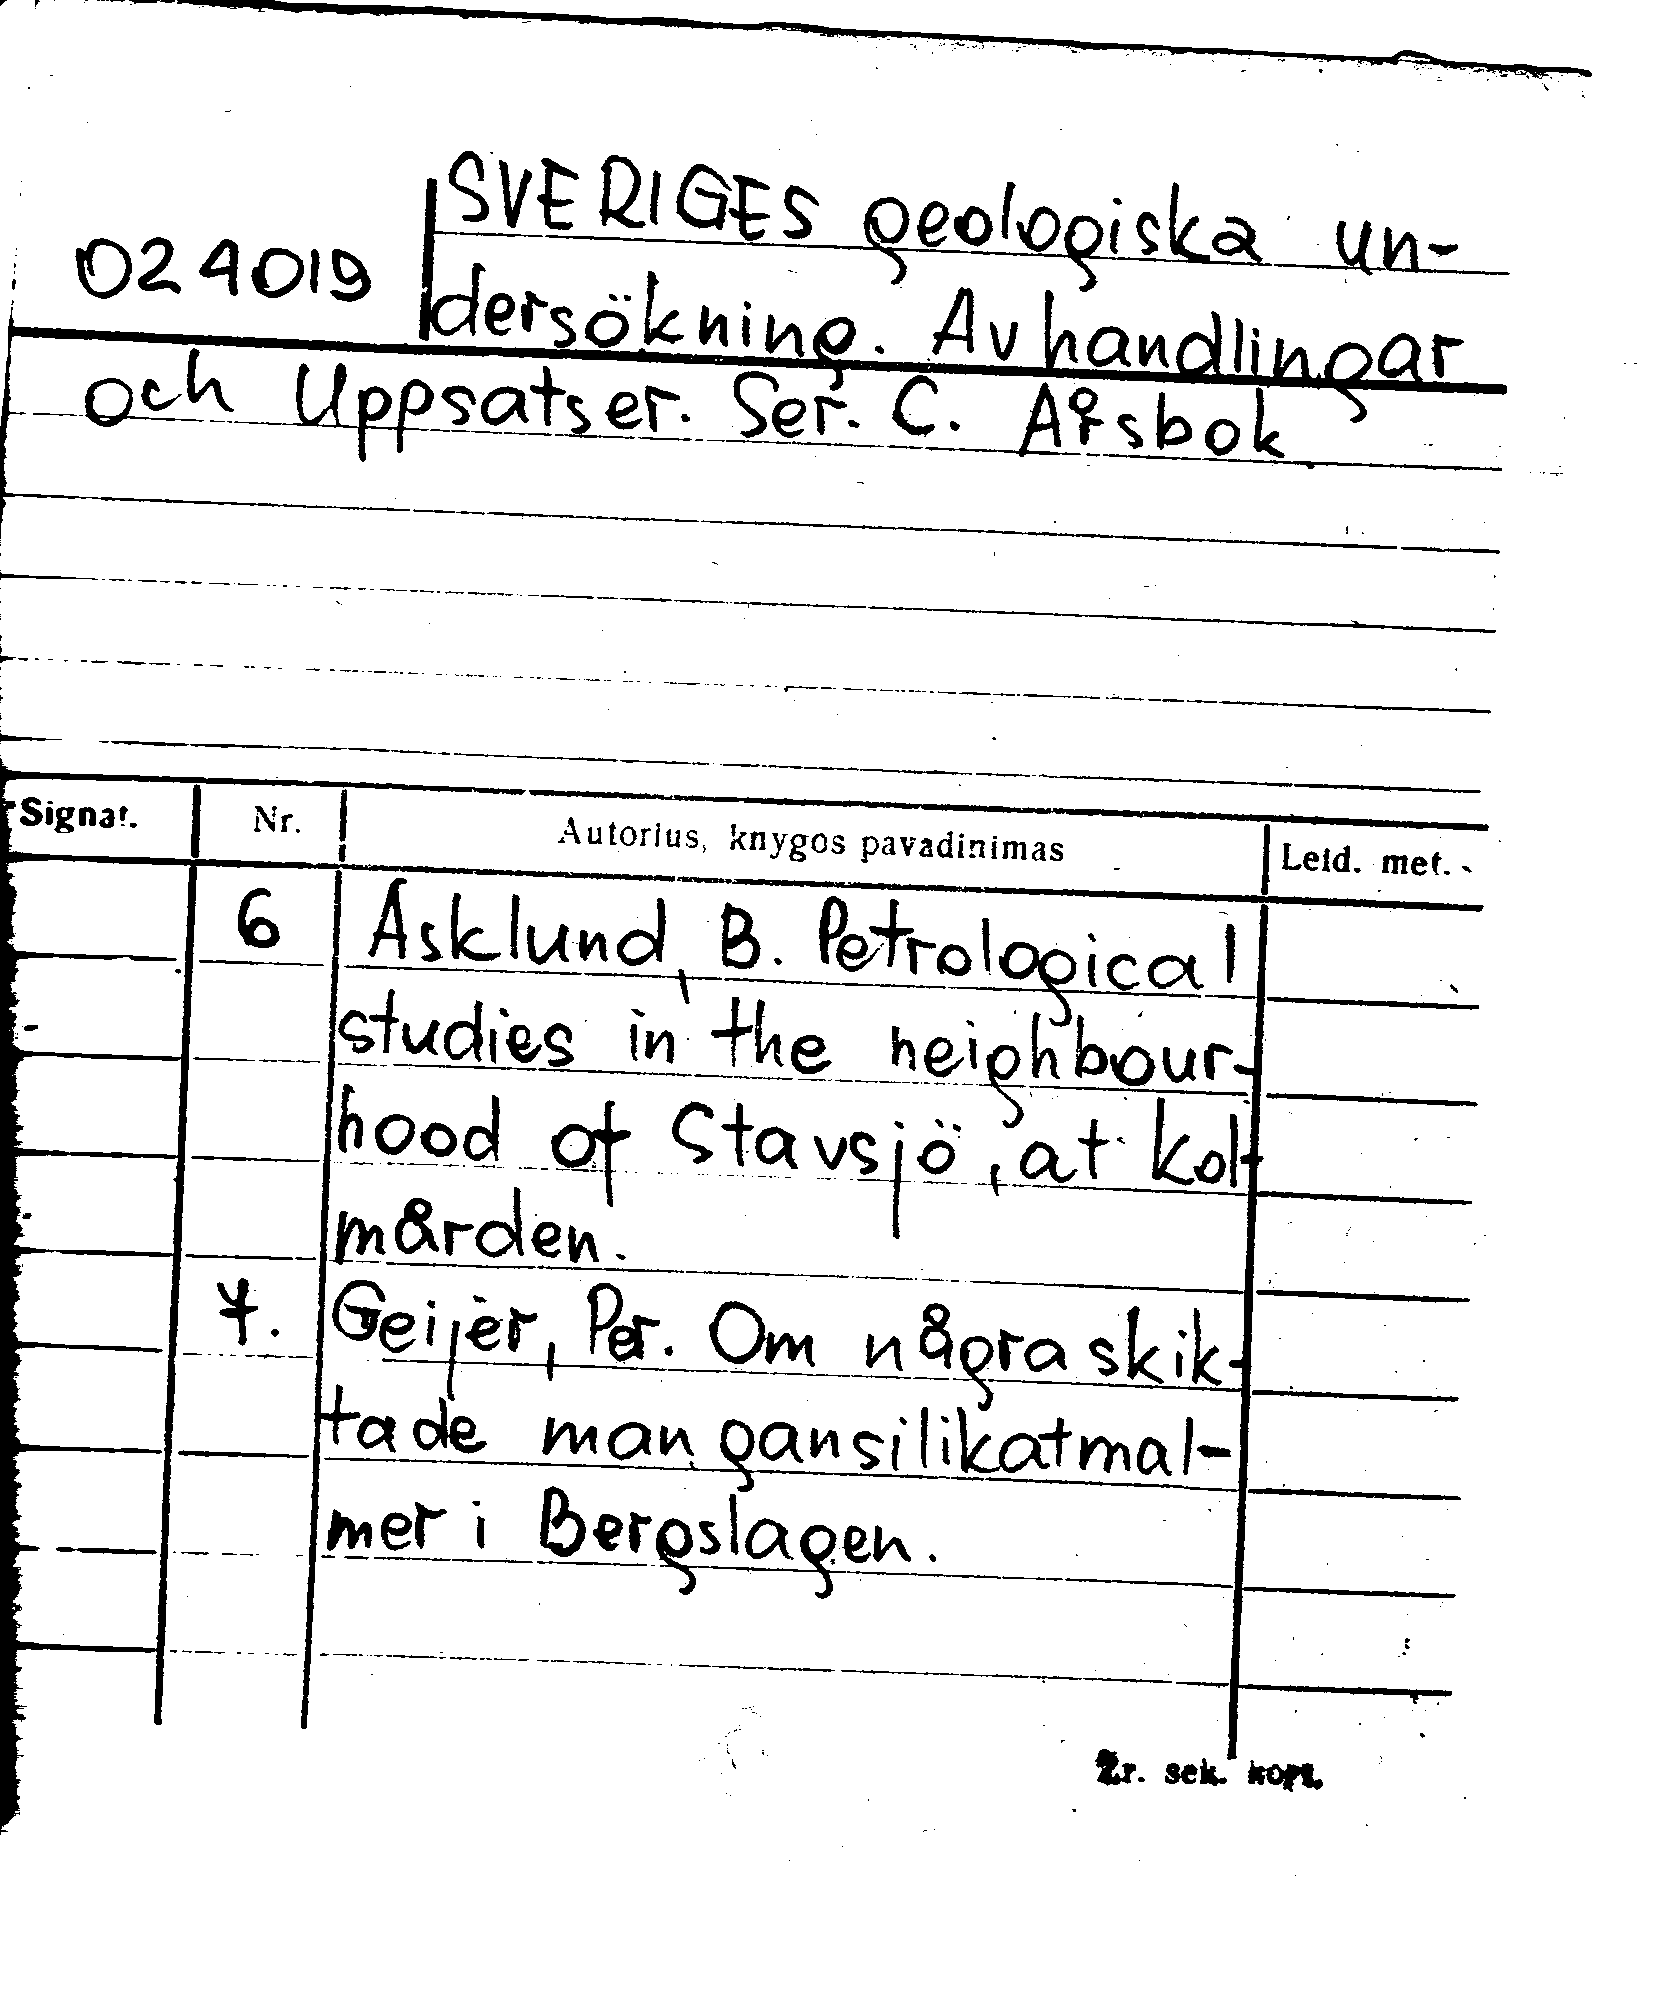 SVERIGES geologiska un-
024019 dersökning. Avhandlingar
och Uppsatser. Ser. C. Årsbok
Signat. Nr. Autorius, knygos pavadinimas Leid. met.
6 Asklund, B. Petrological
studies in the neighbour-
hood of Stavsjö, at kol-
mården.
7. Geijer, Per. Om några skik-
tade mangansilikatmal-
mer i Bergslagen.
Žr. sek. kort.